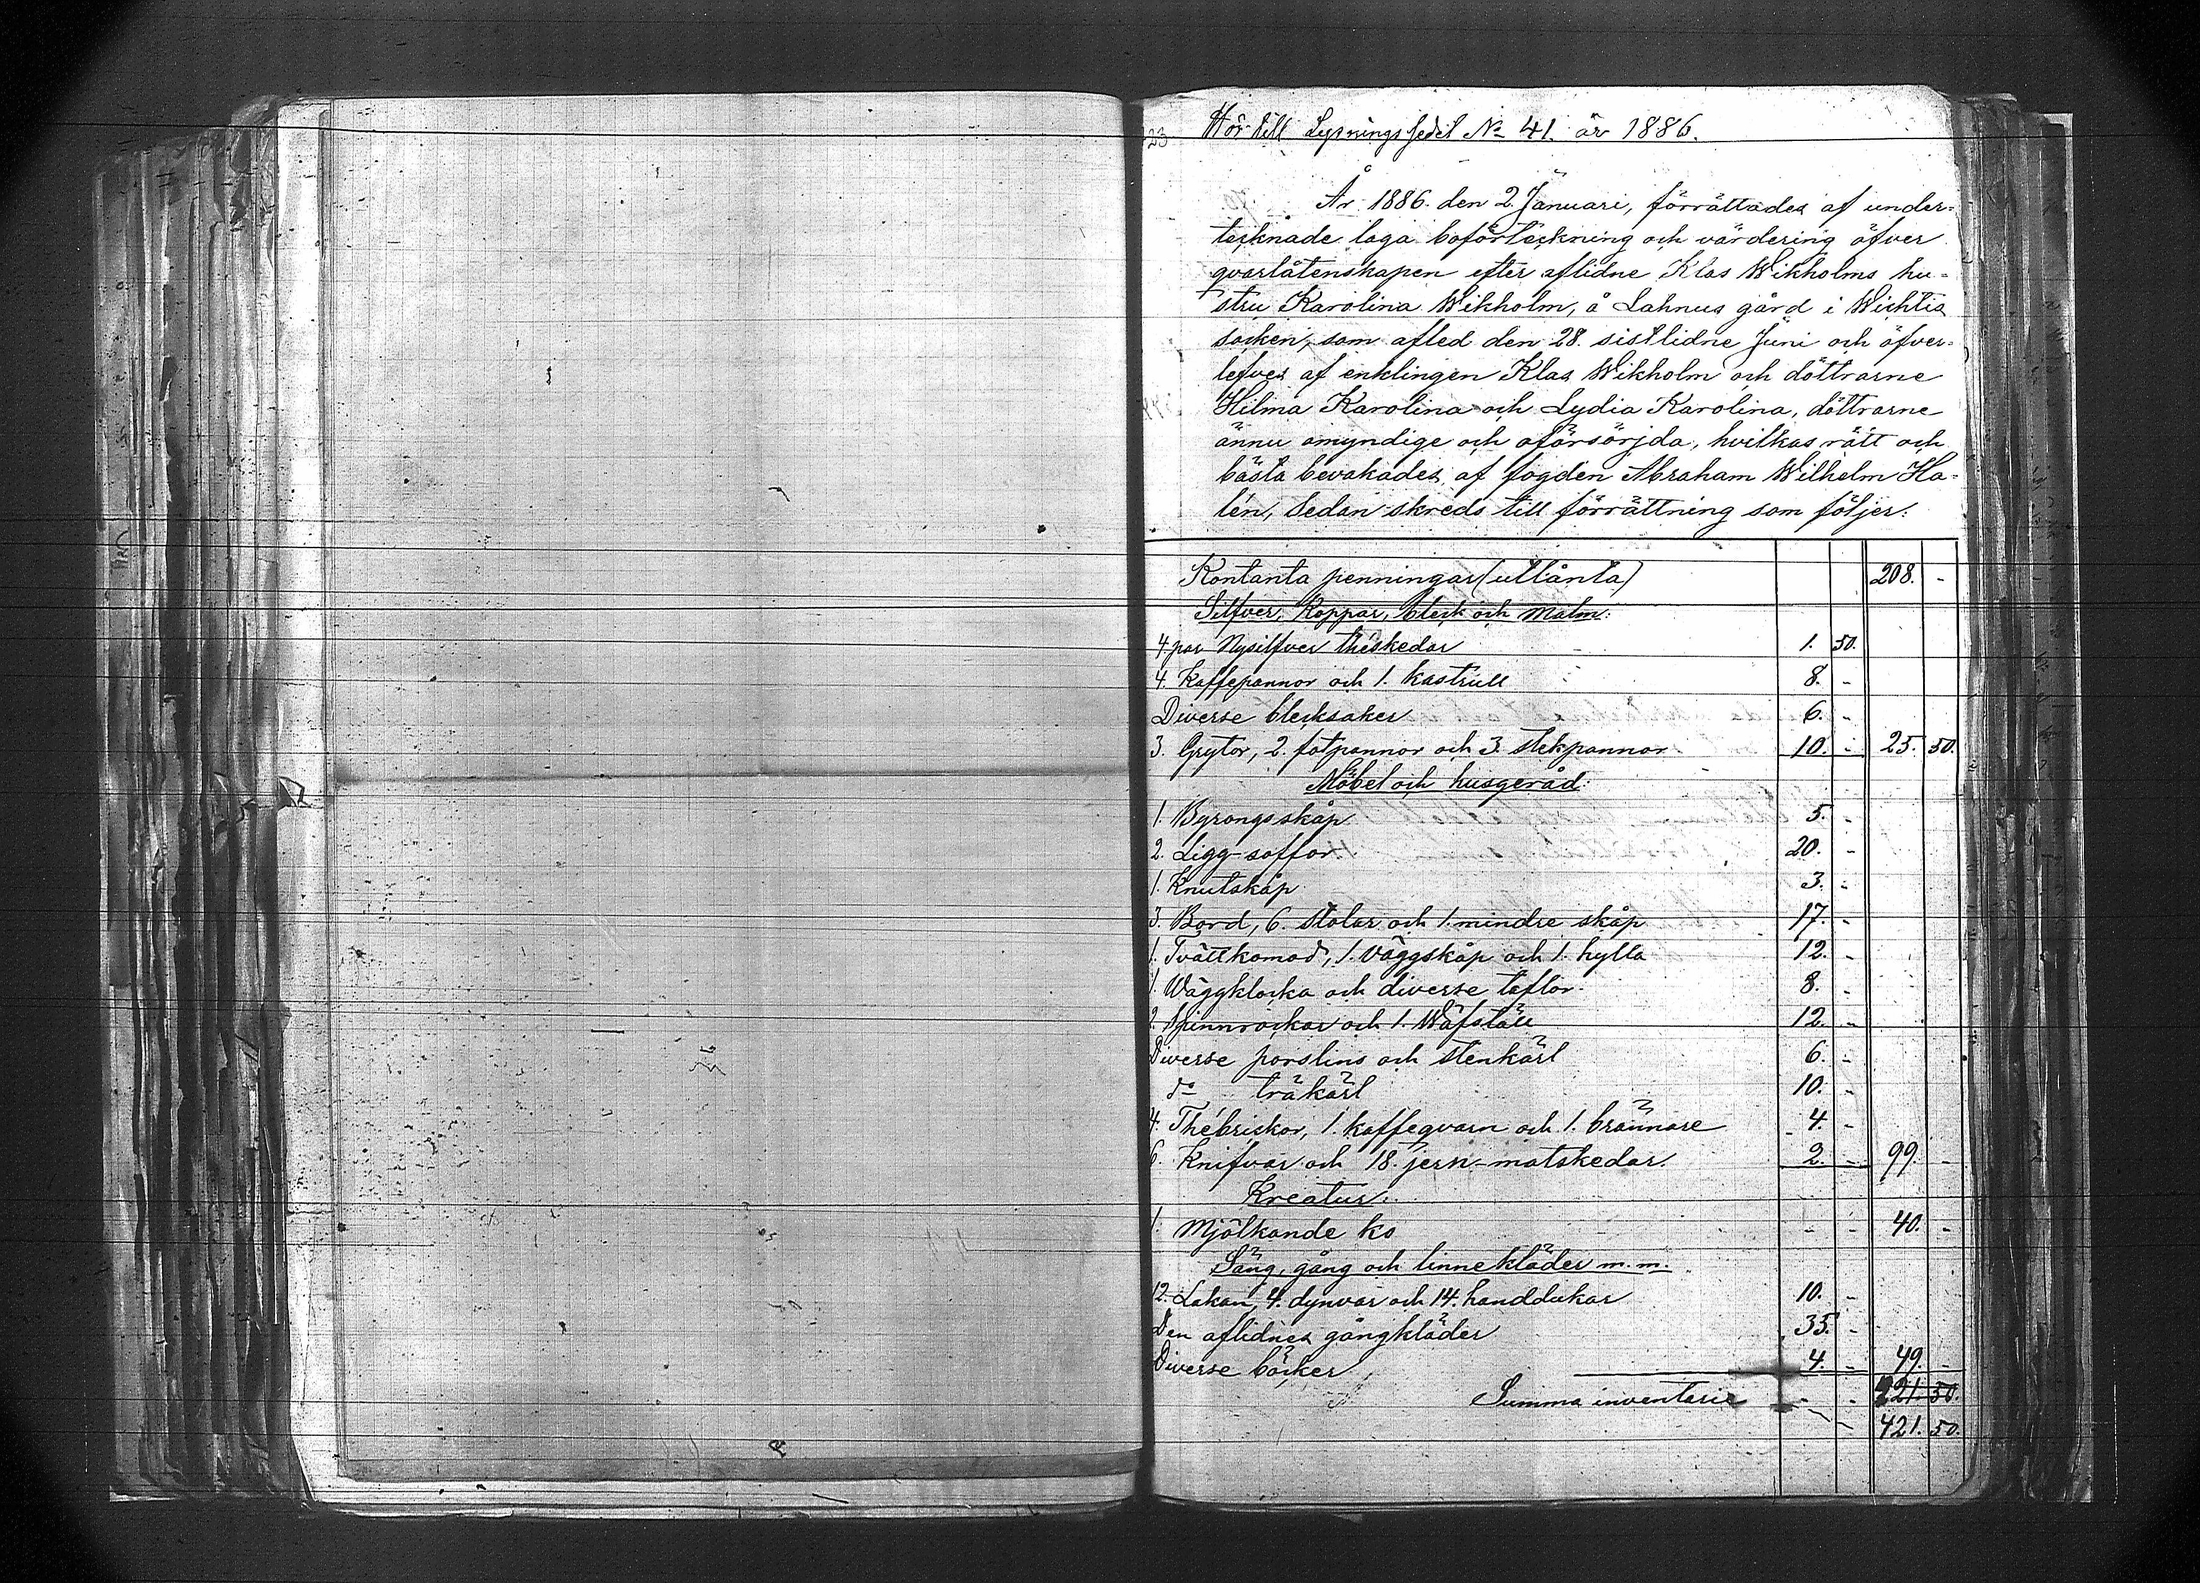 23
Hör till Lysningssedel No 41. år 1886.
År 1886. den 2. Januari, förrättades af under-
tecknade laga boförteckning och värdering öfver
qvarlåtenskapen efter aflidne Klas Wikholms hu-
stru Karolina Wikholm, å Lahnus gård i Wichtis
socken, som afled den 28. sistlidne Juni och öfver-
lefves af enklingen Klas Wikholm och döttrarne
Hilma Karolina och Lydia Karolina, döttrarne
ännu omyndige och oförsörjda, hvilkas rätt och
bästa bevakades af fogden Abraham Wilhelm Ha-
lén, Sedan skreds till förrättning som följer:
Kontanta penningar (utlånta) 208. -
Silfver, Koppar, bleck och Malm:
4. par Nysilfver théskedar 1. 50.
4. Kaffepannor och 1. kastrull 8. -
Diverse blecksaker 6. -
3. Grytor, 2. fotpannor och 3. stekpannor 10. - 25. 50.
Möbel och husgeråd:
1. Byrongsskåp 5. -
2. Ligg-soffor 20. -
1. Knutskåp 3. -
3. Bord, 6. stolar och 1. mindre skåp 17. -
1. Tvättkomod, 1. väggskåp och 1. hylla 12. -
1. Wäggklocka och diverse taflor. 8. -
2. Spinnrockar och 1. Wäfställ 12. -
Diverse porslins och stenkärl 6. -
do träkärl 10. -
4. Thébrickor, 1. kaffeqvarn och 1. brännare 4. -
6. Knifvar och 18. jern-matskedar. 2. - 99. -
Kreatur:
1. Mjölkande ko - - 40. -
Säng, gång och linnekläder m. m.
12. Lakan, 4. dynvar och 14. handdukar 10. -
Den aflidnes gångkläder 35. -
Diverse böcker 4. - 49. -
Summa inventarie - - 221. 50.
421. 50.